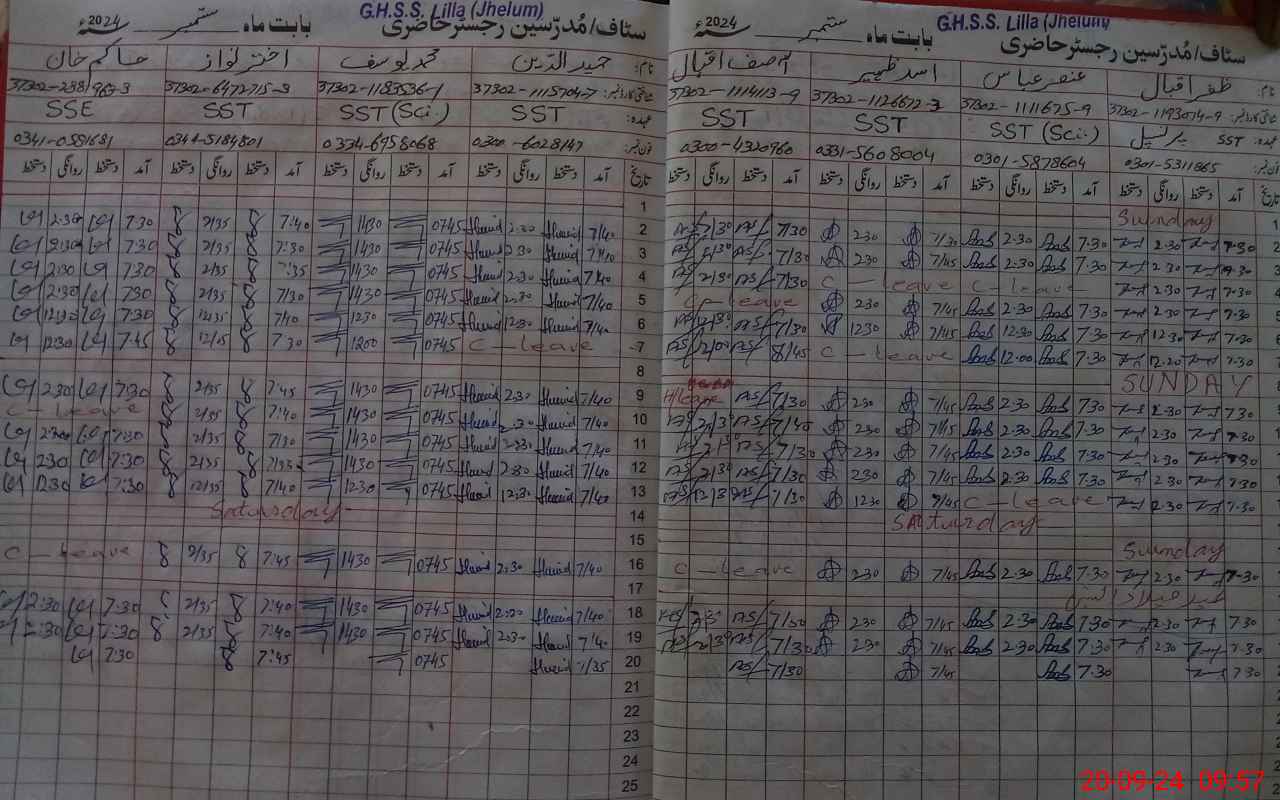 G.H.S.S. Lilla (Jhelum)
سٹاف/مُدرّسین رجسٹر حاضری بابت ماہ ستمبر سنہ 2024ء
نام: ظفر اقبال عنصر عباس اسد ظہیر آصف اقبال
37302-1193014-9 37302-1111675-9 37302-1126672-3 37302-1114113-9
عہدہ: SST پرنسپل SST (Sci:) SST SST
0301-5311865 0301-5878604 0331-5608004 0300-4320960
تاریخ آمد دستخط روانگی دستخط آمد دستخط روانگی دستخط آمد دستخط روانگی دستخط آمد دستخط روانگی دستخط
1 Sunday
2 7.30 2.30 7.30 2:30 7/30 2:30 7/30
3 2:30 7.30 2:30 7/45 2:30 7/30
4 7.30 2:30 C-leave C-leave 7/30
5 7.30 2:30 7.30 2:30 7/45 2:30 C-leave
6 7.30 12:30 7.30 12:30 7/45 1230 7/30
7 7.30 7.30 12:00 C-leave 8/45
8 SUNDAY
9 7.30 2:30 7.30 2:30 7/45 2:30 7/30 H/leave
10 7.30 2:30 7.30 2:30 7/45 2:30
11 2:30 7.30 2:30 7/45 2:30 7/30
12 7.30 2:30 7.30 2:30 7/45 2:30 7/30
13 7.30 C-leave 1230 7/30
14 Saturday
15 Sunday
16 7.30 2:30 7.30 2:30 7/45 2:30 C-leave
17 عید میلاد النبی
18 7.30 2:30 7.30 2:30 7/45 2:30 7/30
19 7.30 2:30 7.30 2:30 7/45 2:30 7/30
20 7.30 7.30 7/45 7/30
G.H.S.S. Lilla (Jhelum)
سٹاف/مُدرّسین رجسٹر حاضری بابت ماہ ستمبر سنہ 2024ء
نام: حمید الدّین محمد یوسف اختر نواز حاکم خان
37302-1115704-7 37302-1183536-1 37302-6472715-3
عہدہ: SST SST (Sci:) SST SSE
0300-6028147 0334-6958068 0344-5184801 0341-0581681
تاریخ آمد دستخط روانگی دستخط آمد دستخط روانگی دستخط آمد دستخط روانگی دستخط آمد دستخط روانگی دستخط
1
2 7/40 Hamid 2:30 Hamid 0745 1430 7:40 2/35 7.30 2:30
3 Hamid 2:30 Hamid 0745 1430 7:30 2/35 7:30 2:30
4 7/40 Hamid 2:30 Hamid 0745 1430 7:35 2/35 7.30 2:30
5 7/40 Hamid 2:30 Hamid 0745 1430 7/30 2/35 7:30 2:30
6 7/40 Hamid 12:30 Hamid 0745 1230 7/40 12/35 7:30 12:30
7 C-leave 0745 1200 7:30 7.45
8
9 7/40 Hamid 2:30 Hamid 0745 1430 7:45 2/35 7:30 2:30
10 7/40 Hamid 2:30 Hamid 0745 1430 7:40 2/35 C-leave
11 7/40 Hamid 2:30 Hamid 0745 1430 7/30 2/35 7:30
12 7/40 Hamid 2:30 Hamid 0745 1430 2/35 7:30 2:30
13 7/40 Hamid 12:30 Hamid 0745 1230 7/40 12/35 7:30 12:30
14 Saturday
15
16 7/40 Hamid 2:30 Hamid 0745 1430 7:45 2/35 C-leave
17
18 7/40 Hamid 2:30 Hamid 0745 1430 7:40 2/35 7:30 2:30
19 7/40 Hamid 2:30 Hamid 0745 1430 7:40 2/35 7:30 2:30
20 7/35 Hamid 0745 7:45 7:30
21
22
23
24
25
20-09-24 09:57